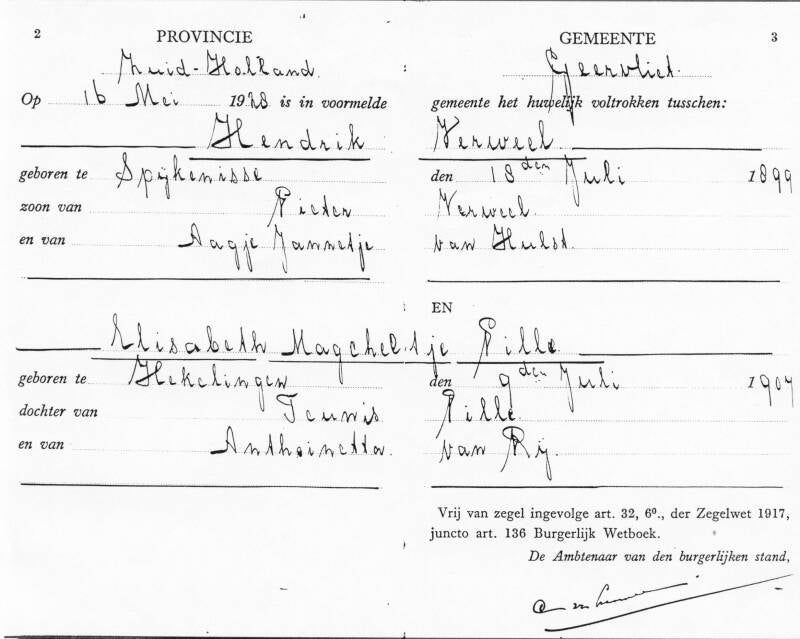 2 PROVINCIE GEMEENTE 3
Zuid-Holland. Geervliet.
Op 16 Mei 1928 is in voormelde gemeente het huwelijk voltrokken tusschen:
Hendrik Verweel
geboren te Spijkenisse den 18den Juli 1899
zoon van Pieter Verweel.
en van Aagje Jannetje van Hulst.
EN
Elisabeth Magcheltje Pille
geboren te Hekelingen den 9den Juli 1907
dochter van Teunis Pille.
en van Anthoinetta. van Rij.
Vrij van zegel ingevolge art. 32, 6º., der Zegelwet 1917,
juncto art. 136 Burgerlijk Wetboek.
De Ambtenaar van den burgerlijken stand,